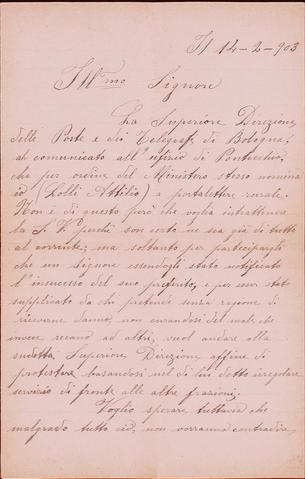 Lì 14-2-903
Ill.mo Signore
La Superiore Direzione
delle Poste e dei Telegrafi di Bologna,
ha comunicato all'ufficio di Ponticchio,
che per ordine del Ministero stesso nomina
io (Lolli Attilio) a portalettere rurale.
Non è di questo però che voglia intrattenere
la S. V. perchè son certo ne sia già di tutto
al corrente; ma soltanto per parteciparle
che un Signore essendogli stato notificato
l'insucesso del suo preferito, e per esser stato
supplicato da chi pretende senza ragione di
riceverne danno, non curandosi del male che
invece recano ad altri, vuol andare alla
sudetta Superiore Direzione affine di
protestare basandosi nel di lui detto irregolare
servizio di fronte alle altre frazioni.
Voglio sperare tuttavia che
malgrado tutto ciò, non vorranno contradire,